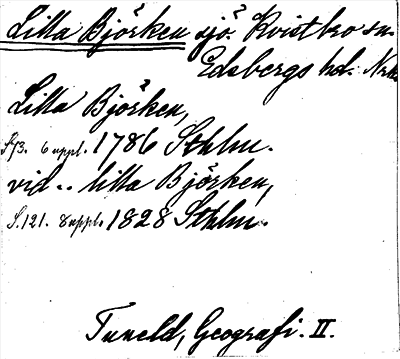 Lilla Björken sjö. Kvistbro sn.
Edsbergs hd. Nrk.
Lilla Björken,
S.73. 6 uppl. 1786 Sthlm.
vid .. lilla Björken,
S.121. 8 uppl. 1828 Sthlm.
Tuneld, Geografi. II.